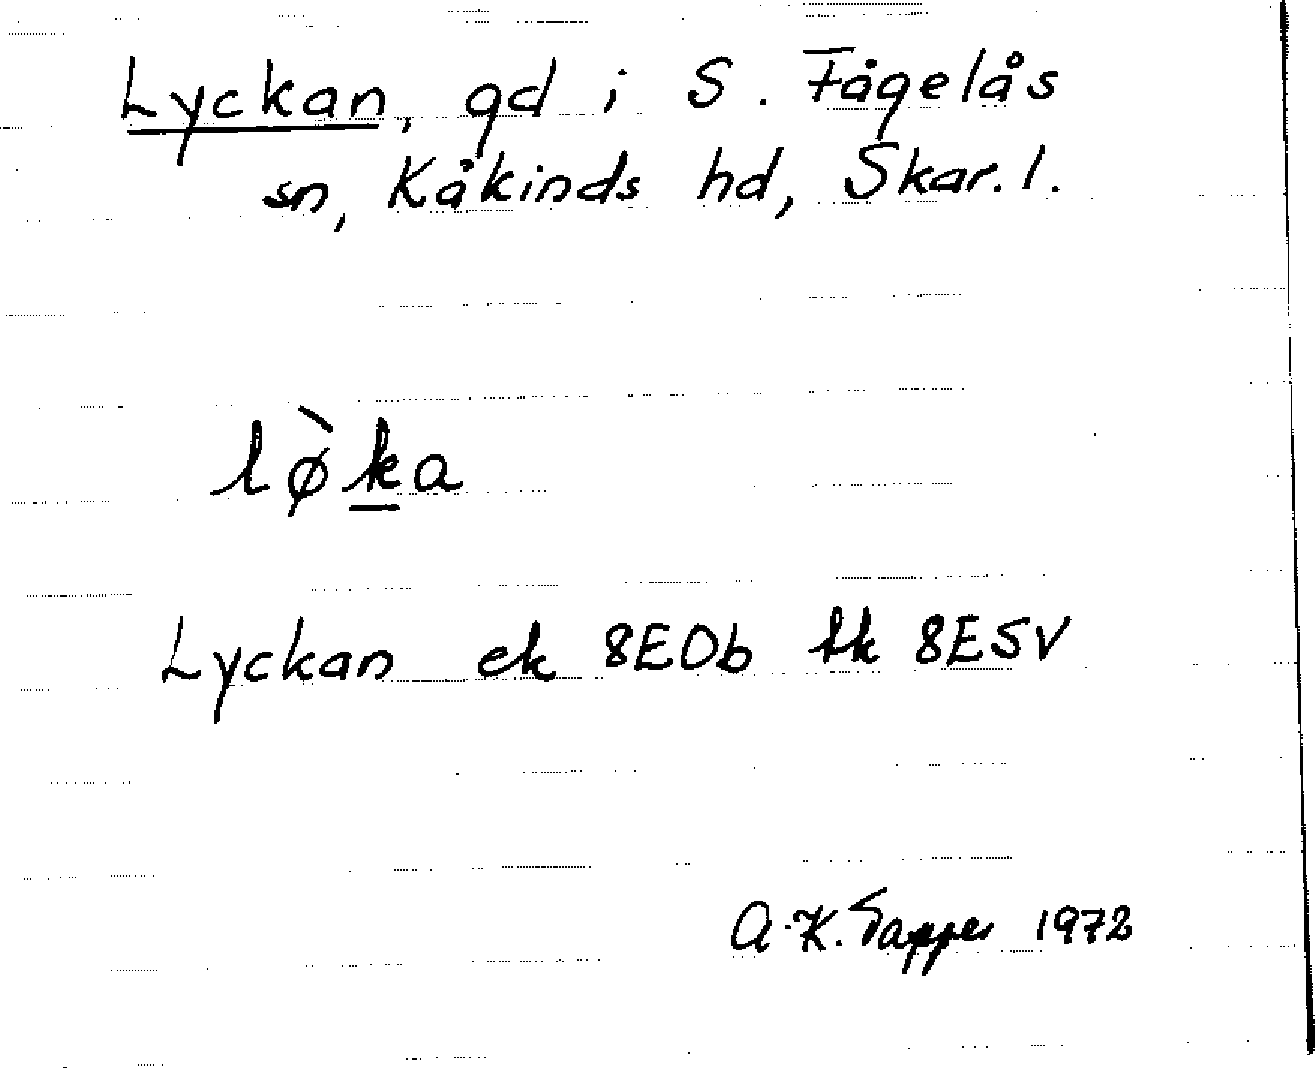 Lyckan, gd i S. Fågelås
sn, Kåkinds hd, Skar. l.
lø̀ka
Lyckan ek 8E0b tk 8E5V
A-K. 1972